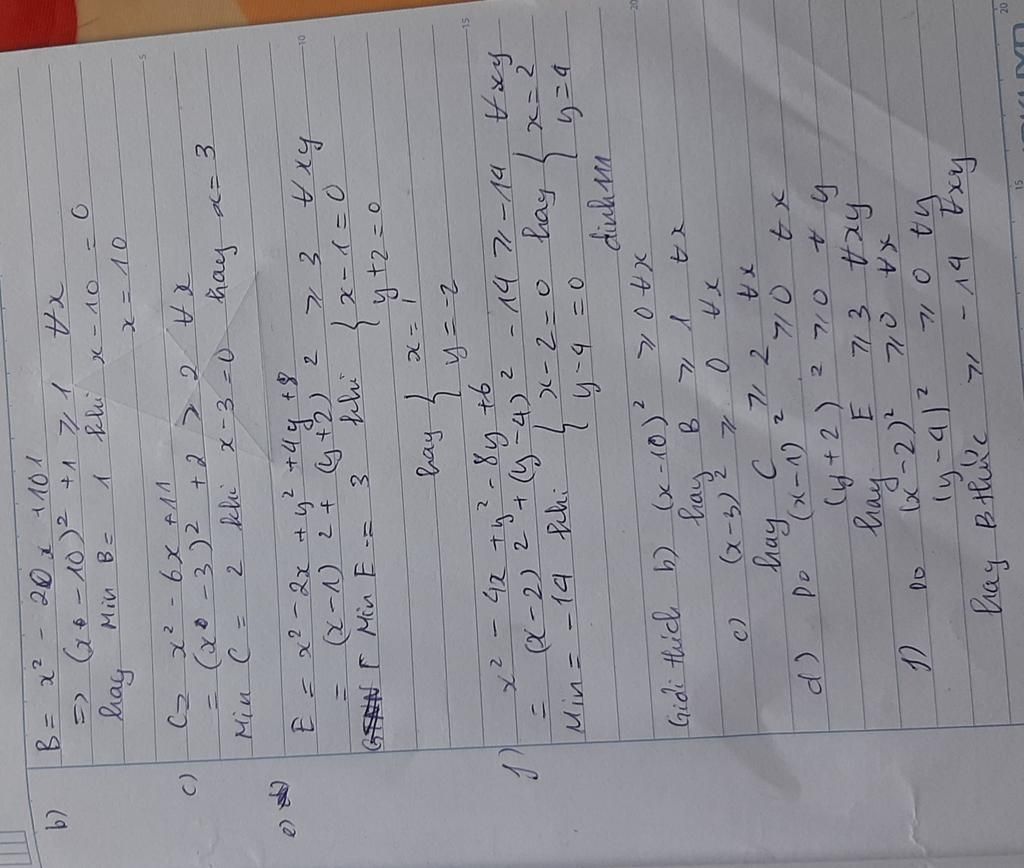 b) B = x² - 20x + 101
=> (x - 10)² + 1 ≥ 1 ∀x
hay Min B = 1 khi x - 10 = 0
x = 10
c) C = x² - 6x + 11
= (x - 3)² + 2 ≥ 2 ∀x
Min C = 2 khi x - 3 = 0 hay x = 3
e) E = x² - 2x + y² + 4y + 8
= (x - 1)² + (y + 2)² ≥ 3 ∀xy
Min E = 3 khi { x - 1 = 0
y + 2 = 0
hay { x = 1
y = -2
f) x² - 4x + y² - 8y + 6
= (x - 2)² + (y - 4)² - 14 ≥ -14 ∀xy
Min = -14 khi { x - 2 = 0 hay { x = 2
y - 4 = 0 y = 4
Giải thích b) (x - 10)² ≥ 0 ∀x
hay B ≥ 1 ∀x
c) (x - 3)² ≥ 0 ∀x
hay C ≥ 2 ∀x
d) Do (x - 1)² ≥ 0 ∀x
(y + 2)² ≥ 0 ∀y
hay E ≥ 3 ∀xy
f) Do (x - 2)² ≥ 0 ∀x
(y - 4)² ≥ 0 ∀y
hay B thức ≥ -14 ∀xy
5
10
15
20
15
20